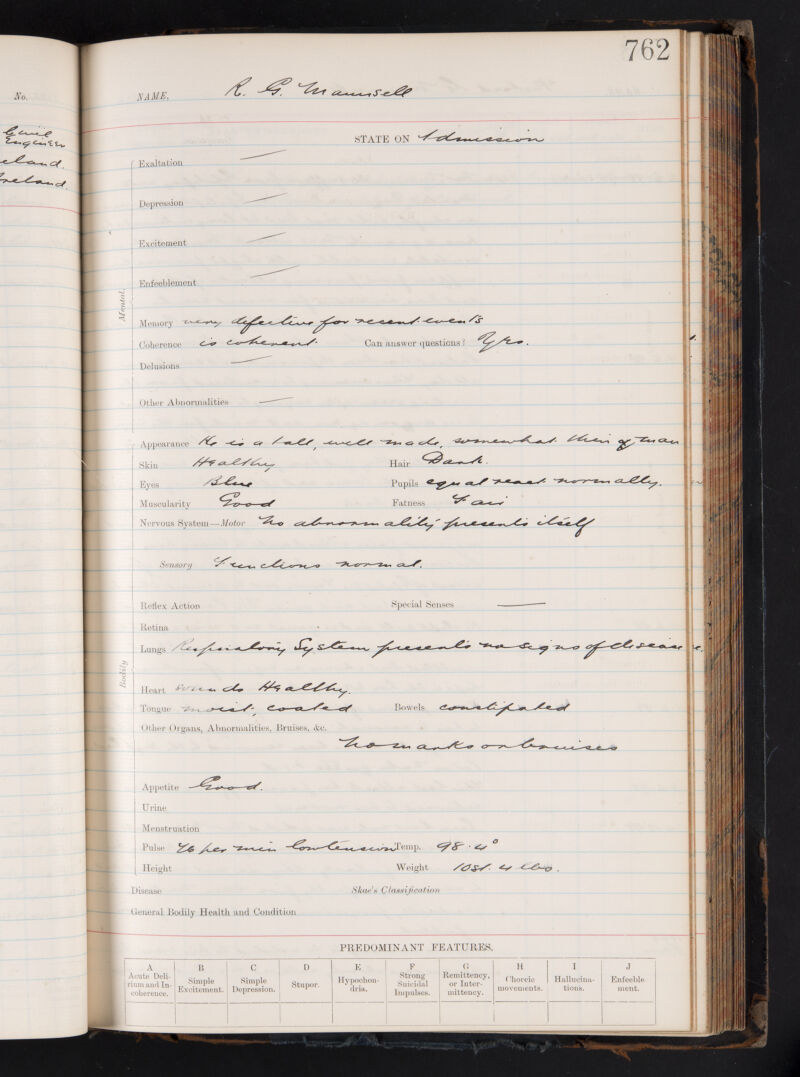 762
No.
Civil
Engineer
eland.
reland.
NAME, R. G. Maunsell
STATE ON Admission
Mental.
Exaltation —
Depression —
Excitement —
Enfeeblement —
Memory very defective for recent events
Coherence is coherent. Can answer questions? Yes.
Delusions —
Other Abnormalities —
Bodily
Appearance He is a tall, well made, somewhat thin man
Skin Healthy Hair Dark.
Eyes Blue Pupils equal react normally.
Muscularity Good Fatness Fair
Nervous System—Motor No abnormality presents itself
Sensory Functions normal.
Reflex Action Special Senses —
Retina
Lungs Respiratory System presents no signs of disease
Heart sounds Healthy.
Tongue moist, coated Bowels constipated
Other Organs, Abnormalities, Bruises, &c.
No marks or bruises
Appetite Good.
Urine
Menstruation
Pulse 76 per min low tension Temp. 98.4°
Height Weight 10st. 4 lbs.
Disease Skae's Classification
General Bodily Health and Condition
PREDOMINANT FEATURES.
A B C D E F G H I J
Acute Delirium and Incoherence. Simple Excitement. Simple Depression. Stupor. Hypochondria. Strong Suicidal Impulses. Remittency, or Intermittency. Choreic movements. Hallucinations. Enfeeblement.